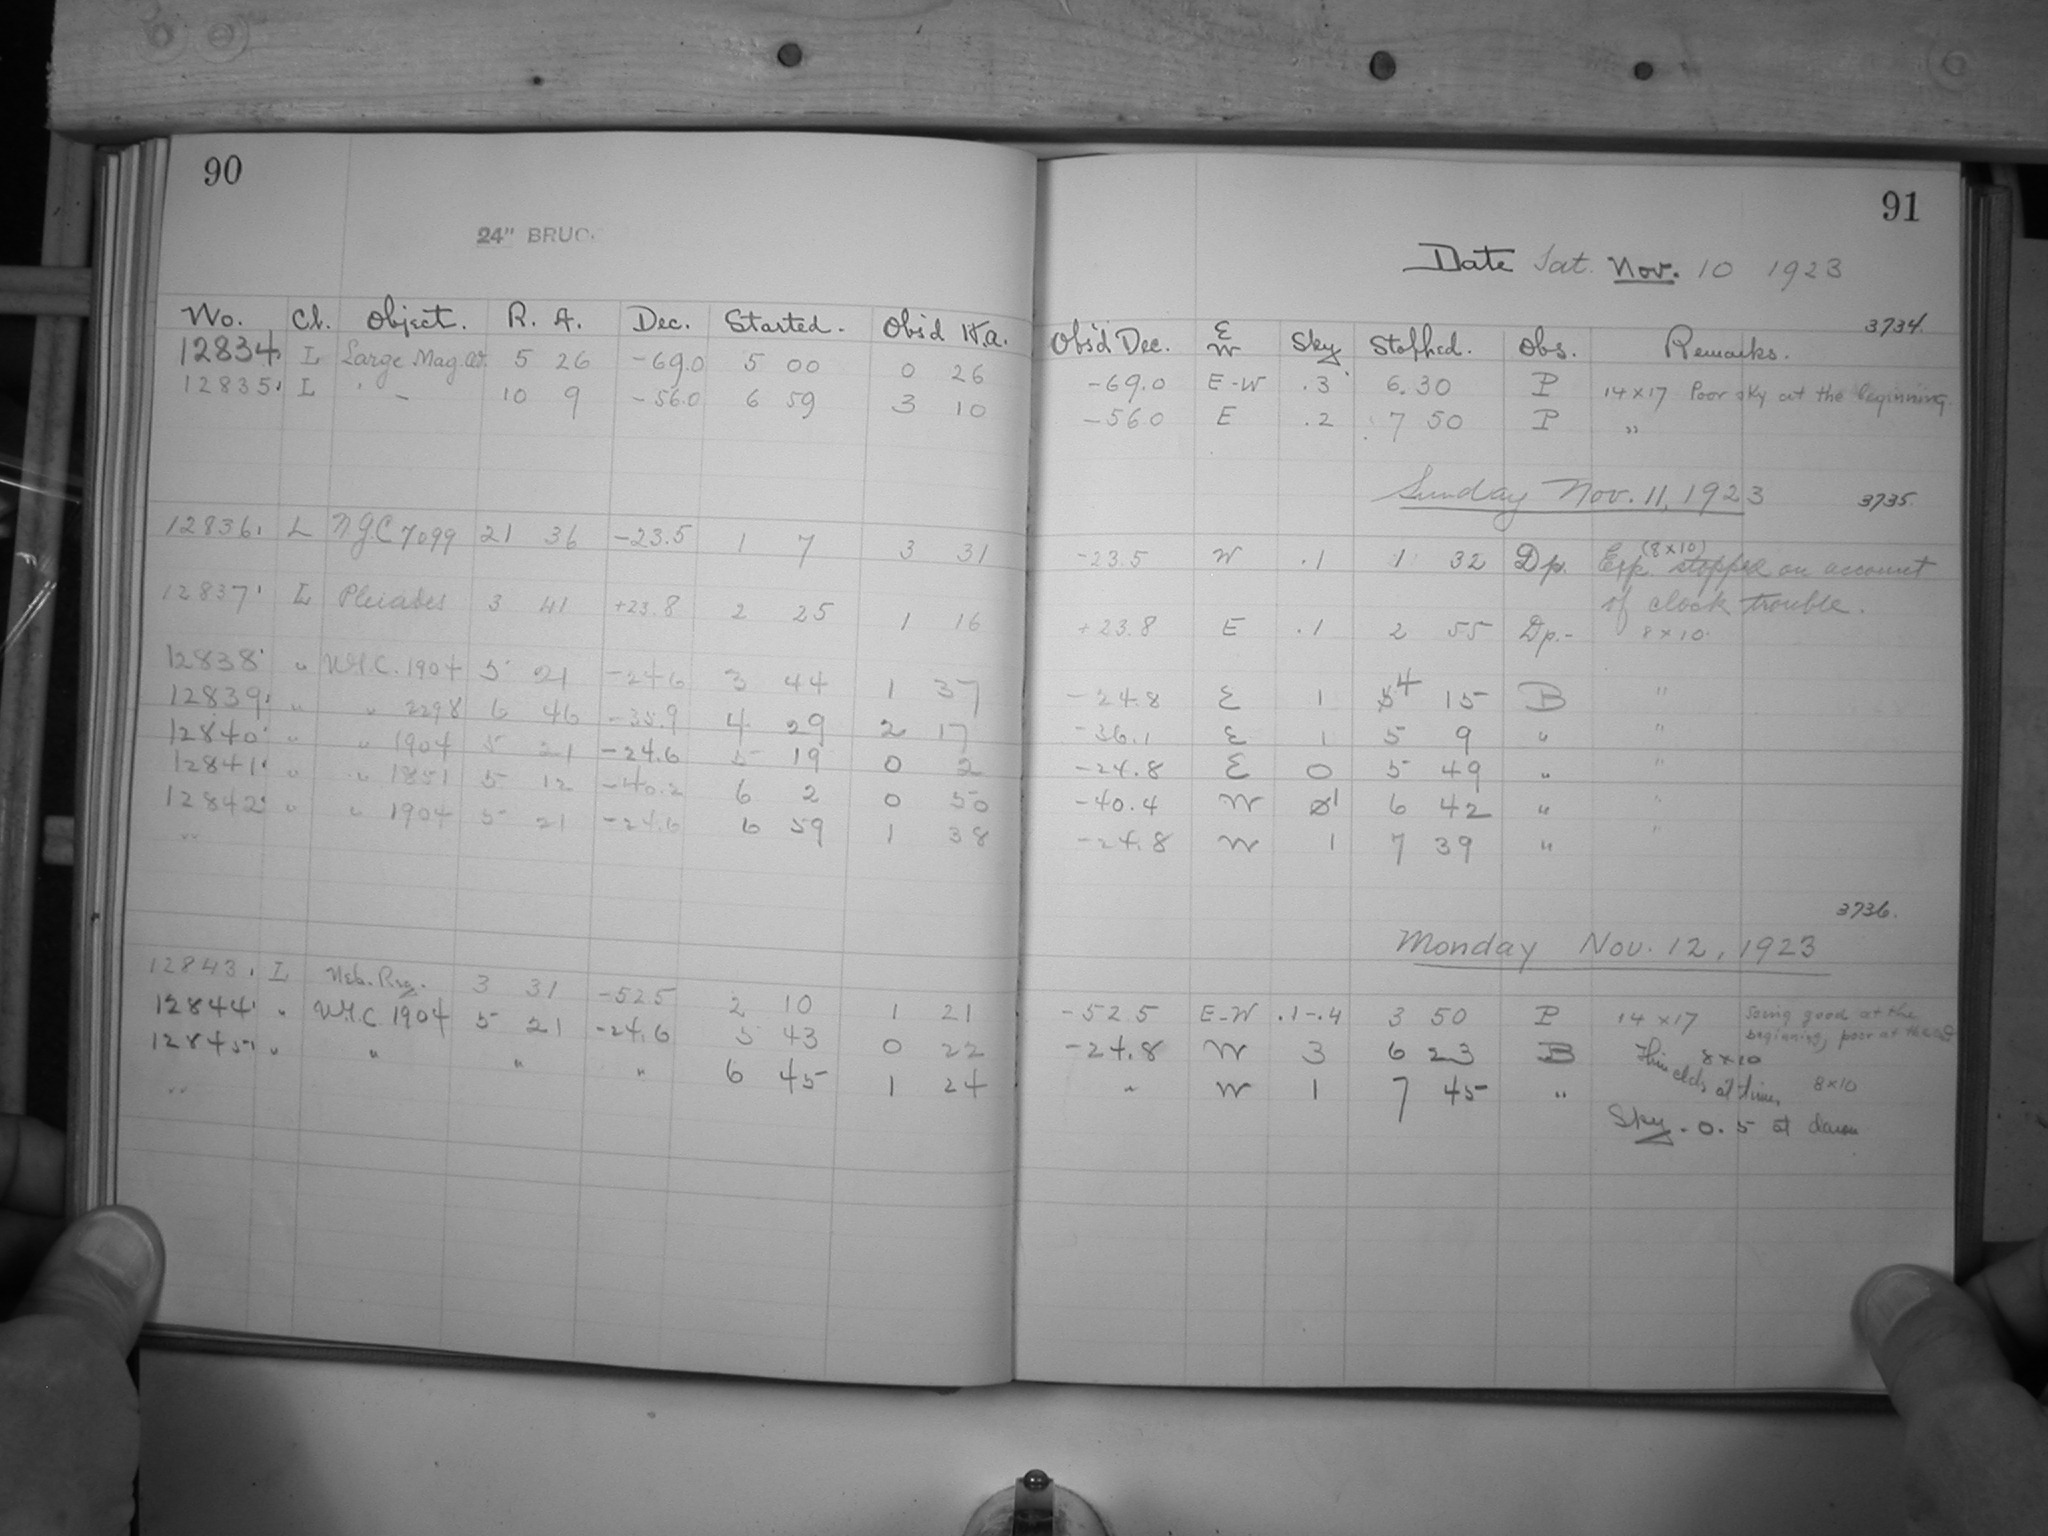 90
24" BRUC
No. Cl. Object. R. A. Dec. Started. Obs'd H.a.
12834 L Large Mag. 5 26 -69.0 5 00 0 26
12835 L " - 10 9 -56.0 6 59 3 10
12836 L N.G.C 7099 21 36 -23.5 1 7 3 31
12837 L Pleiades 3 41 +23.8 2 25 1 16
12838 " N.G.C. 1904 5 21 -24.6 3 44 1 37
12839 " " 2298 6 46 -35.9 4 29 2 17
12840 " " 1904 5 21 -24.6 5 19 0 2
12841 " " 1851 5 12 -40.2 6 2 0 50
12842 " " 1904 5 21 -24.6 6 59 1 38
"
12843 L Neb. Reg. 3 31 -52.5 2 10 1 21
12844 " N.G.C 1904 5 21 -24.6 5 43 0 22
12845 " " " " 6 45 1 24
"
91
Date Sat. Nov. 10 1923
3734.
Obs'd Dec. E W Sky Stopped. Obs. Remarks.
-69.0 E-W .3 6.30 P 14x17 Poor sky at the beginning
-56.0 E .2 7 50 P "
Sunday Nov. 11, 1923 3735.
-23.5 W .1 1 32 Dp. (8x10) Exp. stopped on account
of clock trouble.
+23.8 E .1 2 55 Dp.- 8x10.
-24.8 E 1 4 15 B "
-36.1 E 1 5 9 " "
-24.8 E 0 5 49 " "
-40.4 W 1 6 42 " "
-24.8 W 1 7 39 " "
3736.
Monday Nov. 12, 1923
-52.5 E-W .1-.4 3 50 P 14x17 Seeing good at the
beginning, poor at the end
-24.8 W 3 6 23 B 8x10
Thin clds at times
" W 1 7 45 " 8x10
Sky. 0.5 at dawn